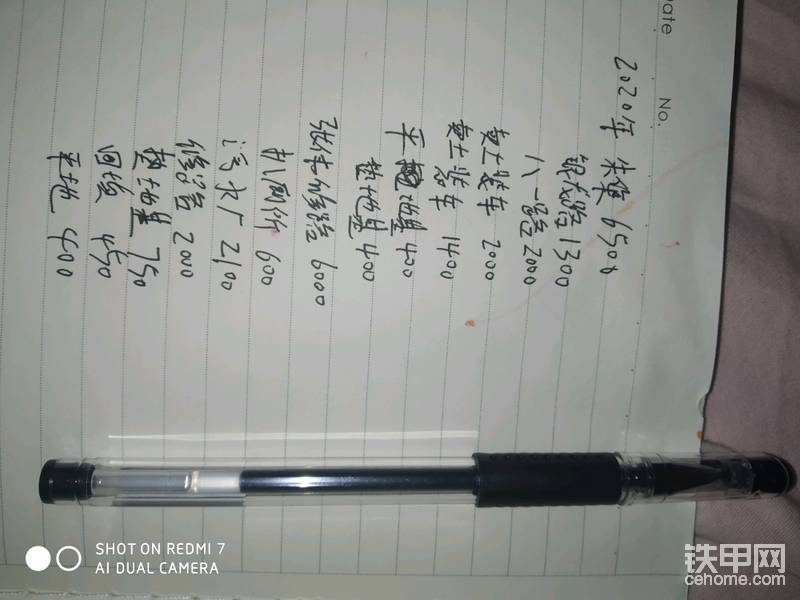 Date
No.
2020年 朱集 6500
银龙路 1300
八一路 2000
黄土装车 2000
黄土装车 1400
平地 400
挖地基 400
张体修路 6000
600
污水厂 2100
修路 2000
挖地基 750
回填 450
平地 400
SHOT ON REDMI 7
AI DUAL CAMERA
铁甲网
cehome.com